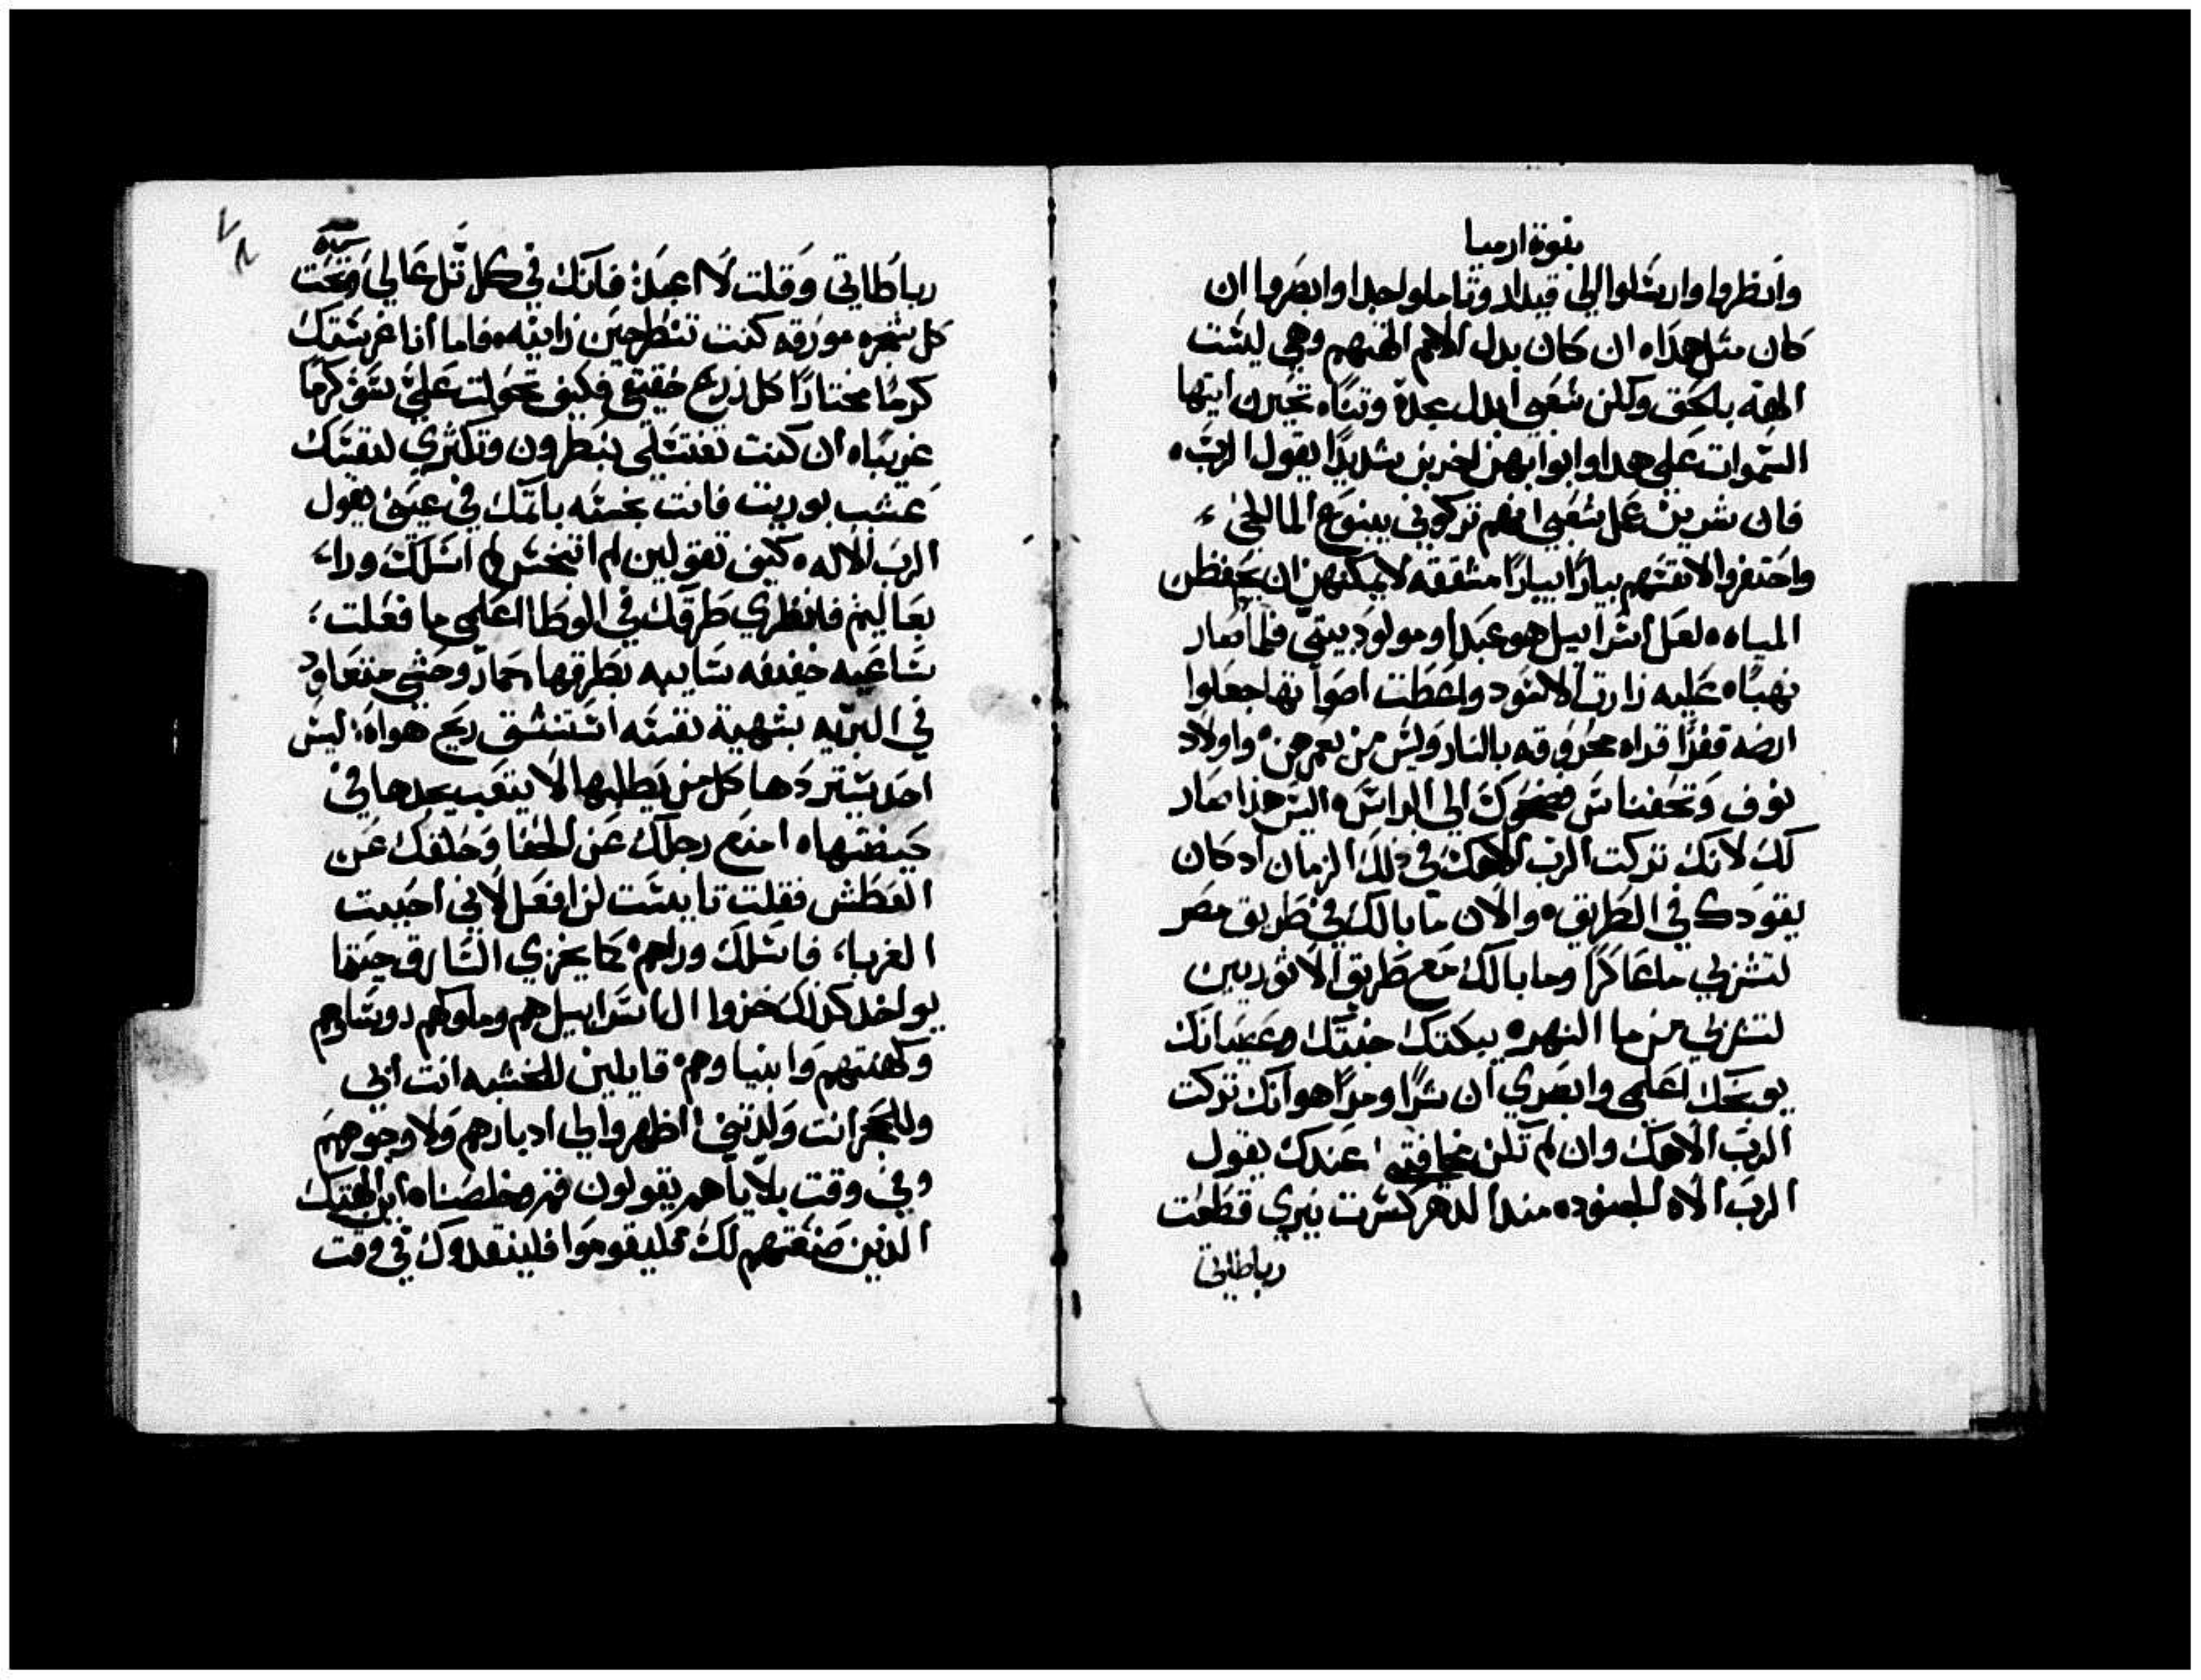 نبوة ارميا
وانظروا وارسلوا الي قيدار وتاملوا جدا وابصروا ان
كان مثل هدا ه ان كان بدل الامم الهتهم وهي ليست
الهه بالحق ولكن شعبي ابدل مجده وتناه تحيرن ايتها
السموات علي هدا وابوابهن اخربن شديدًا يقول الرب ه
فان شرين عمل شعبي انهم تركوني ينبوع الما الحي
واحتفروا لانفسهم بيارًا بيارًا مشققه لا يمكنهن ان يحفظن
المياه ه لعل اسراييل هو عبد او مولود بيتي فلما صار
نهبًا ه عليه زارت الاسود واعطت اصواتها جعلوا
ارضه قفرًا قراه محروقه بالنار وليس من يعمرهن ه واولاد
نوف وتحفناس فضحوك الي الراس ه اليس هذا صار
لك لانك تركت الرب الاهك في ذلك الزمان اد كان
يقودك في الطريق ه والان ما بالك في طريق مصر
لتشربي ما عاكرًا وما بالك مع طريق الاثوريين
لتشربي من ما النهر ه يبكتك خبثك وعصيانك
يوبخك اعلمي وابصري ان شرًا ومرًا هو انك تركت
الرب الاهك وان لم تكن مخافتي عندك يقول
الرب الاه الجنود ه مند الدهر كسرت نيري قطعت
رباطاتي
رباطاتي وقلت لا اعبد فانك في كل تل عالي وتحت
كل شجره مورقه كنت تنطرحين زانيه ه فاما انا غرستك
كرمًا مختارًا كل زرع حقيقي فكيف تحولت علي يسوف كرمًا
غريبًا ه ان كنت تغتسلي بنطرون وتكثري لنفسك
عشب بوريت فانت نجسه باثمك في عيني يقول
الرب الاله ه كيف تقولين لم اتنجس لم اسلك وراء
بعاليم فانظري طرقك في الوطا اعلمي ما فعلت
ساعيه خفيفه سايبه بطرقها حمار وحشي متعاود
في البريه بشهية نفسه استنشق ريح هواه ليس
احد يستردها كل من يطلبها لا يتعب يجدها في
حيضتها ه امنع رجلك عن الحفا وحلقك عن
العطش فقلت تايست لن افعل لاني احببت
الغربا فاسلك وراهم ه كما يخزي السارق حينما
يواخد كذلك خزوا ال اسراييل هم وملوكهم روساوهم
وكهنتهم وانبياوهم ه قايلين للخشبه انت ابي
وللحجر انت ولدتني اظهروا لي ادبارهم ولا وجوههم
وفي وقت بلاياهم يقولون قم وخلصنا ه اين الهتك
الذين صنعتهم لك فليقوموا فلينقدوك في وقت